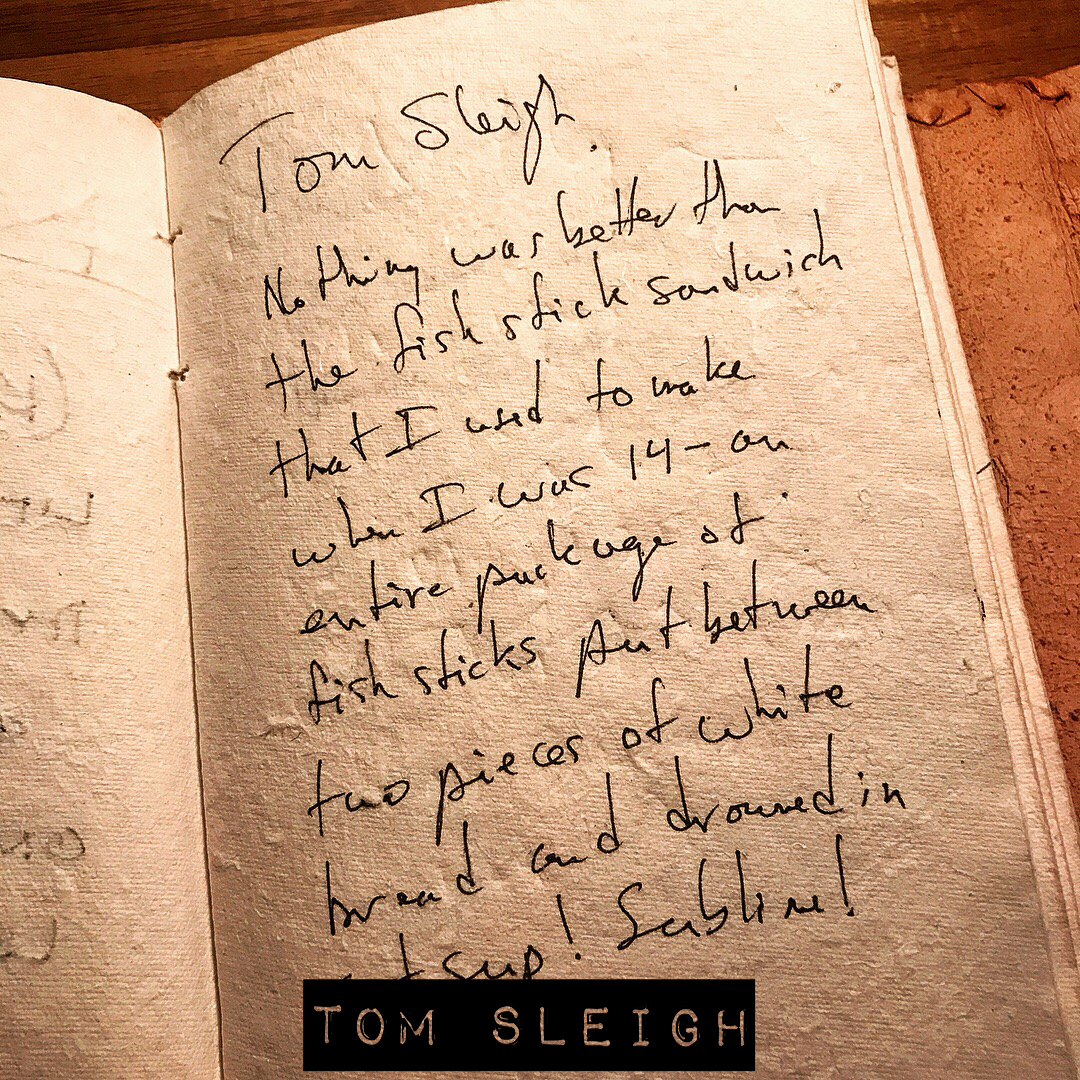 Tom Sleigh.
Nothing was better than
the fish stick sandwich
that I used to make
when I was 14 - an
entire package of
fish sticks put between
two pieces of white
bread and drowned in
Sublime!
TOM SLEIGH